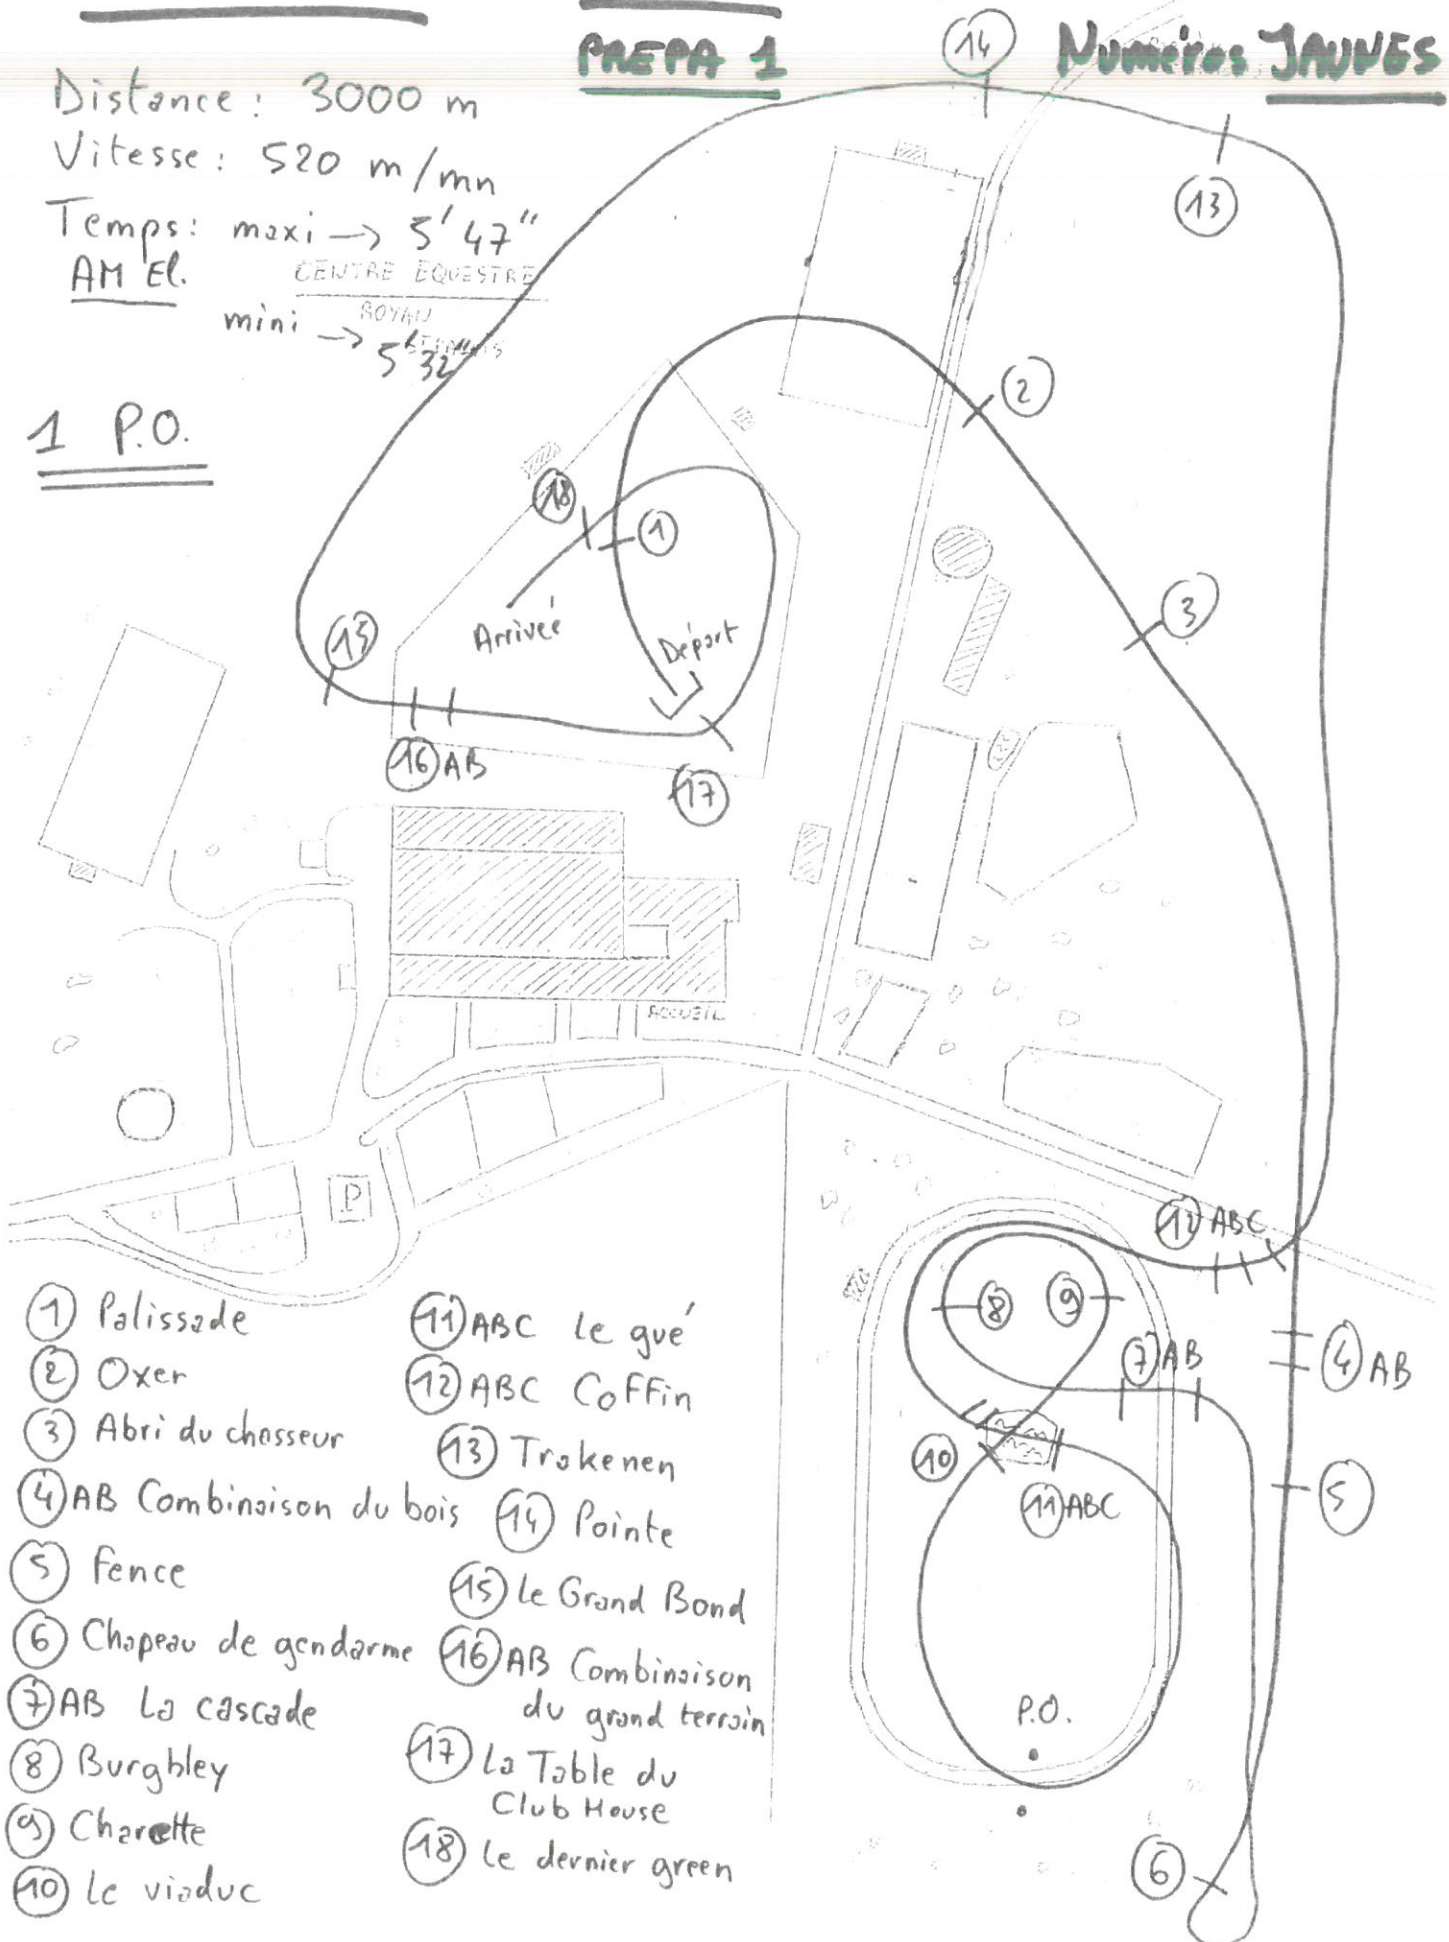 PREPA 1
14
Numéros JAUNES
Distance : 3000 m
Vitesse : 520 m/mn
Temps : maxi → 5' 47"
AM El.
CENTRE EQUESTRE
ROYAN
mini → 5' 32"
1 P.O.
13
2
18
1
3
15
Arrivée
Départ
16 AB
17
ACCUEIL
P
12 ABC
8
9
7 AB
4 AB
10
11 ABC
5
P.O.
6
1 Palissade
2 Oxer
3 Abri du chasseur
4 AB Combinaison du bois
5 Fence
6 Chapeau de gendarme
7 AB La cascade
8 Burghley
9 Charette
10 Le viaduc
11 ABC Le gué
12 ABC Coffin
13 Trakenen
14 Pointe
15 Le Grand Bond
16 AB Combinaison
du grand terrain
17 La Table du
Club House
18 Le dernier green